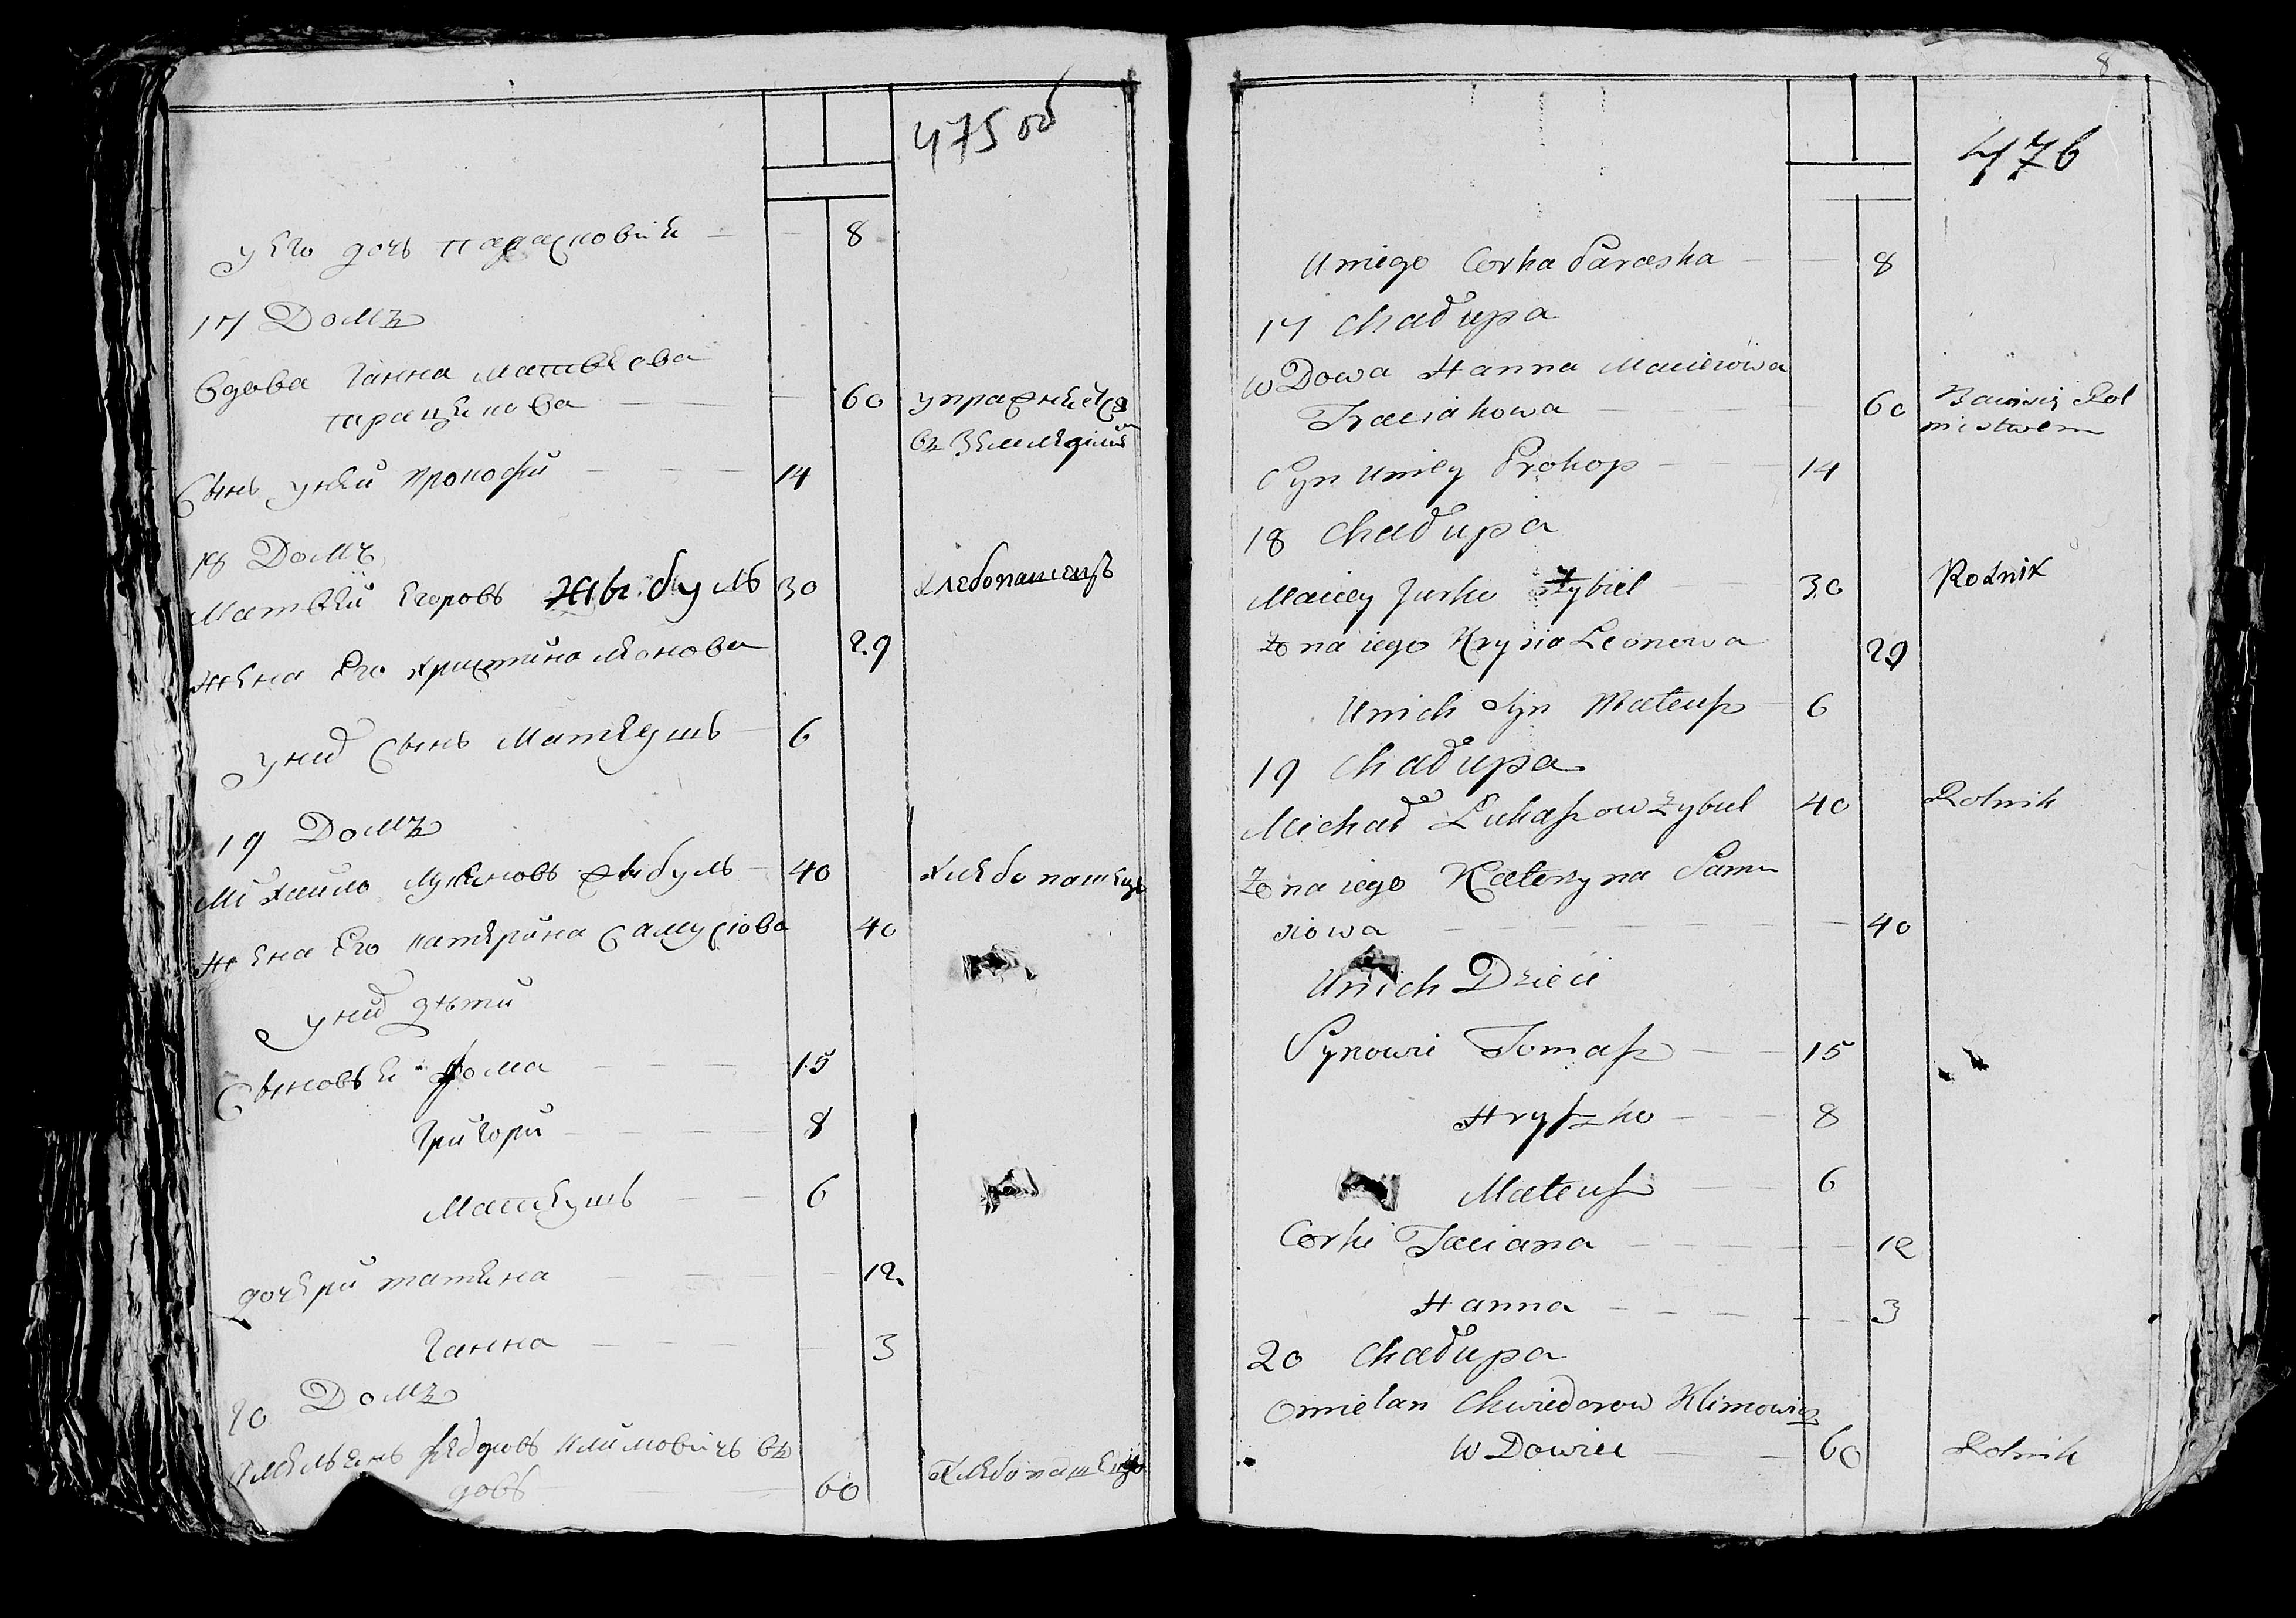 475 об
у Его дочь парасковія — — 8
17 Домъ
Вдова Ганна Матвѣева
трацякова — — — 60 упражняется
въ Земледѣліи
Сынъ у ней Прокофій — — — 14
18 Домъ
Матвѣй Егоровъ Жыбуль 30 хлебопашецъ
Жена Его Христина Леонова 29
у них Сынъ Матеушъ — 6
19 Домъ
Міхайло Лукановъ Жыбуль — 40 Хлебопашецъ
Жена Его катерина Самусіова 40
у них дѣти
Сыновья Фома — — — 15
Григорій — — — — 8
Матеушъ — — 6
дочери татяна — — — 12
Ганна — — — 3
20 Домъ
Амельянъ Федоровъ климовичъ въ
довъ — — — 60 Хлебопашецъ
8
476
U niego Corka Paraska — — 8
17 Chałupa
WDowa Hanna Macieiowa
Traciakowa — — — — 60 Bawisię Rol
nictwem
Syn U niey Prokop — — — 14
18 Chałupa
Maciey Jurko Zybul — 30 Rolnik
Żona iego Krysia Leonowa 29
U nich Syn Mateusz — 6
19 Chałupa
Michał Łukaszow Zybul 40 Rolnik
Żona iego Kateryna Samu
siowa — — — — — — — 40
U nich Dzieci
Synowie Tomasz — — 15
Hryszko — — — 8
Mateusz — — 6
Corki Taciana — — — — — 12
Hanna — — — — — 3
20 Chałupa
Omielan Chwiedorow Klimowicz
WDowiec — — 60 Rolnik